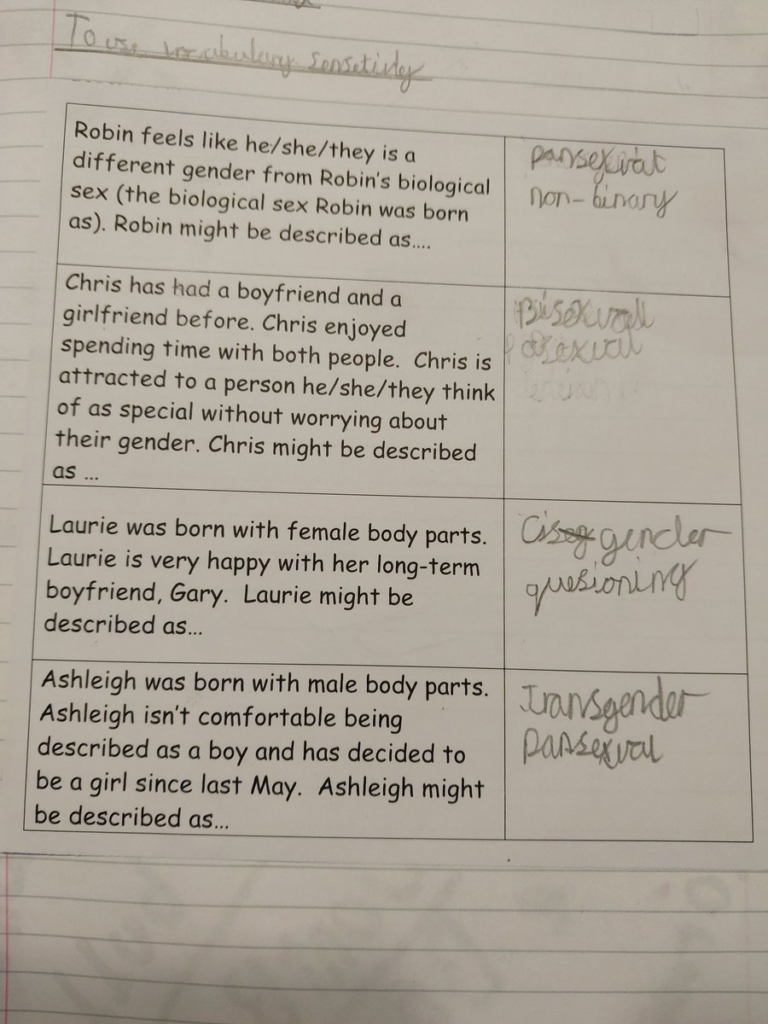 To use vocabulary sensetivley
Robin feels like he/she/they is a
different gender from Robin's biological
sex (the biological sex Robin was born
as). Robin might be described as....
pansexual
non-binary
Chris has had a boyfriend and a
girlfriend before. Chris enjoyed
spending time with both people. Chris is
attracted to a person he/she/they think
of as special without worrying about
their gender. Chris might be described
as ...
Bisexuall
asexual
Laurie was born with female body parts.
Laurie is very happy with her long-term
boyfriend, Gary. Laurie might be
described as...
Cisgender
quesioning
Ashleigh was born with male body parts.
Ashleigh isn't comfortable being
described as a boy and has decided to
be a girl since last May. Ashleigh might
be described as...
Transgender
pansexual